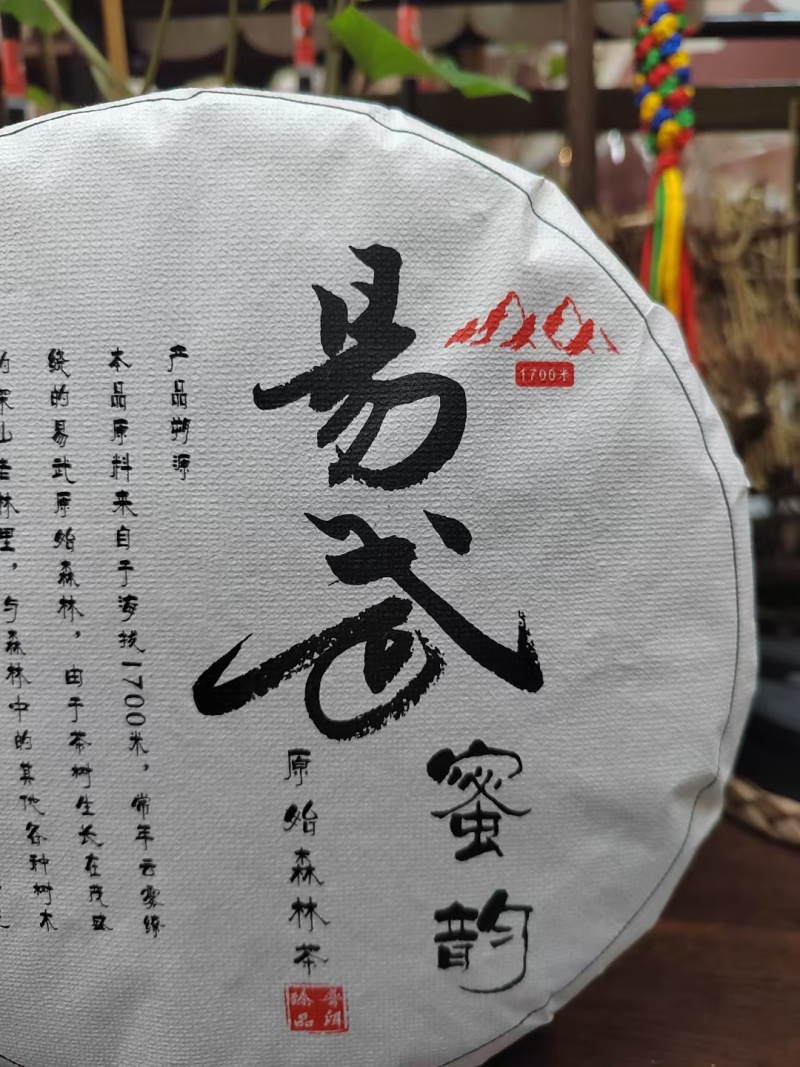 易武
1700米
蜜韵
原始森林茶
普洱
珍品
产品朔源
本品原料来自于海拔1700米，常年云雾缭
绕的易武原始森林，由于茶树生长在茂盛
的深山老林里，与森林中的其他各种树木